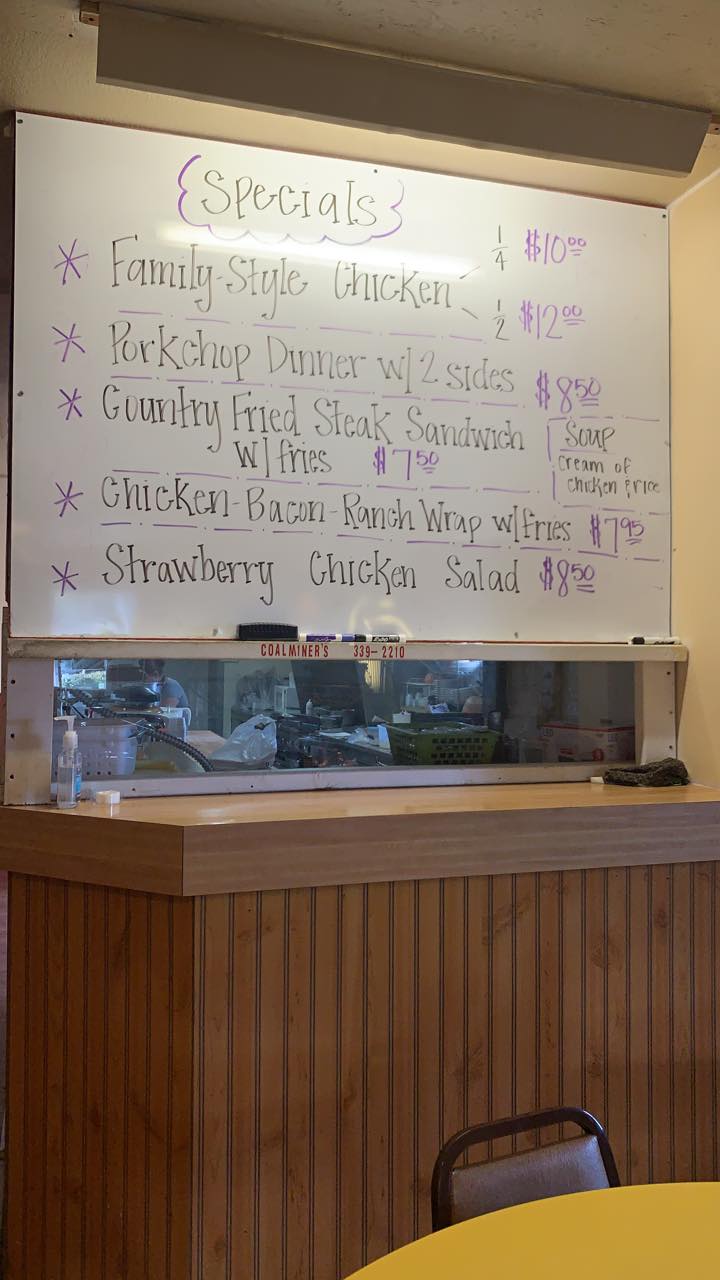 Specials
* Family-Style Chicken 1/4 $10.00
1/2 $12.00
* Porkchop Dinner w/ 2 sides $8.50
* Country Fried Steak Sandwich
w/ fries $7.50
Soup
cream of
chicken & rice
* Chicken-Bacon-Ranch Wrap w/ fries $7.95
* Strawberry Chicken Salad $8.50
COALMINER'S 339-2210